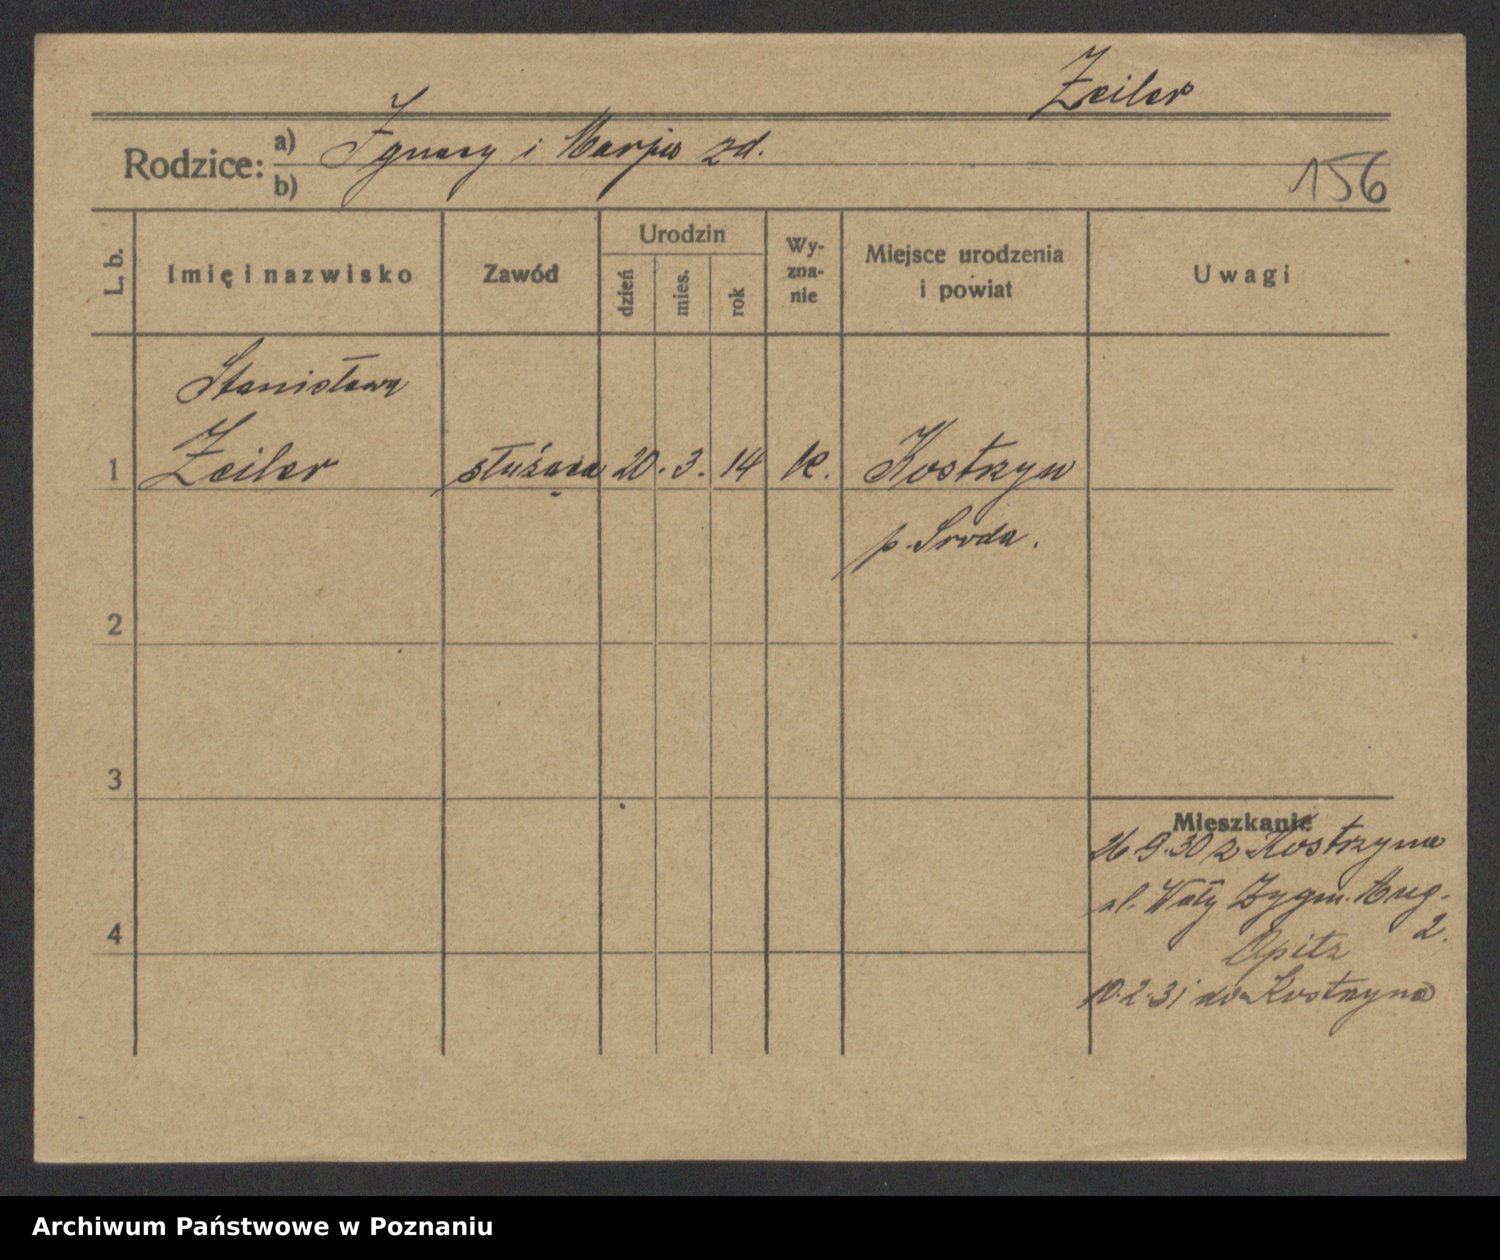 Zeiler
Rodzice:
a) Ignacy i Marja zd.
b)
156
L. b.
Imię i nazwisko
Zawód
Urodzin
dzień
mies.
rok
Wy-
zna-
nie
Miejsce urodzenia
i powiat
Uwagi
Stanisława
1 Zeiler służąca 20. 3. 14 k. Kostrzyn
p. Sroda.
2
3
Mieszkanie
26.9.30 z Kostrzyna
ul. Wały Zygm. Aug.
2.
4
Opitz
10.2.31 do Kostrzyna
Archiwum Państwowe w Poznaniu